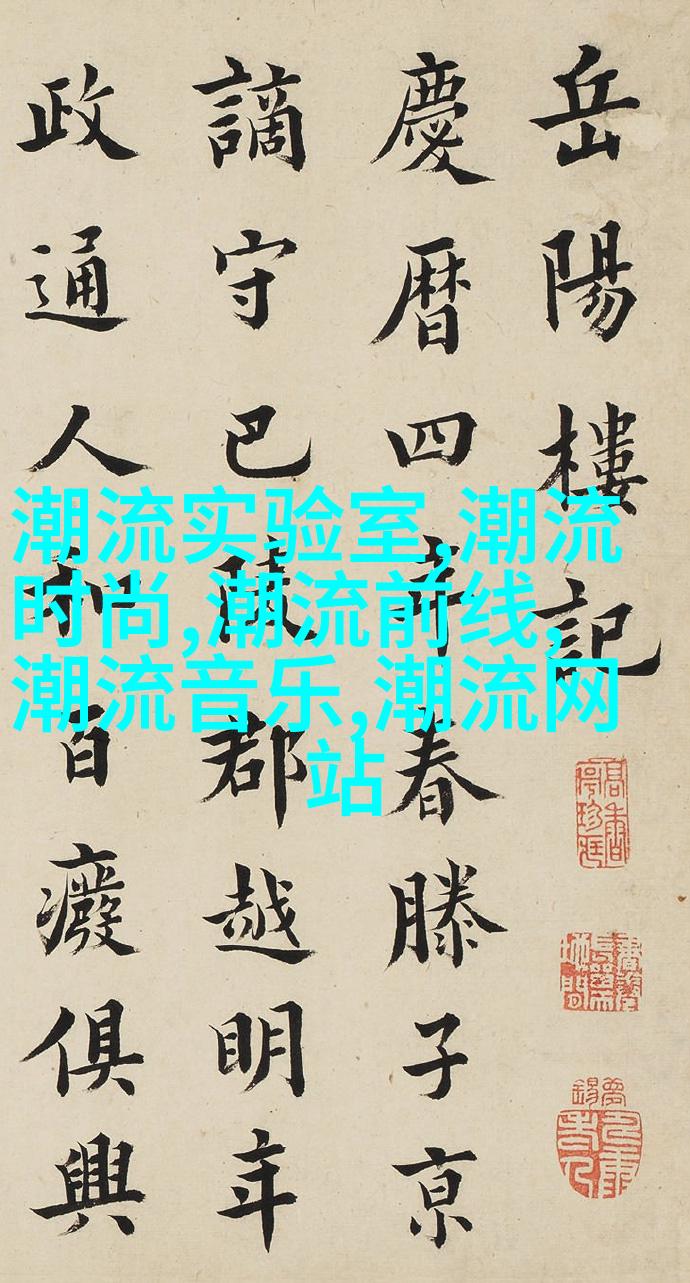 岳陽樓記
慶暦四年春滕子亰
謫守巴陵郡越明年
政通人和百癈俱興
潮流实验室,潮流
时尚,潮流前线,
潮流音乐,潮流网
站